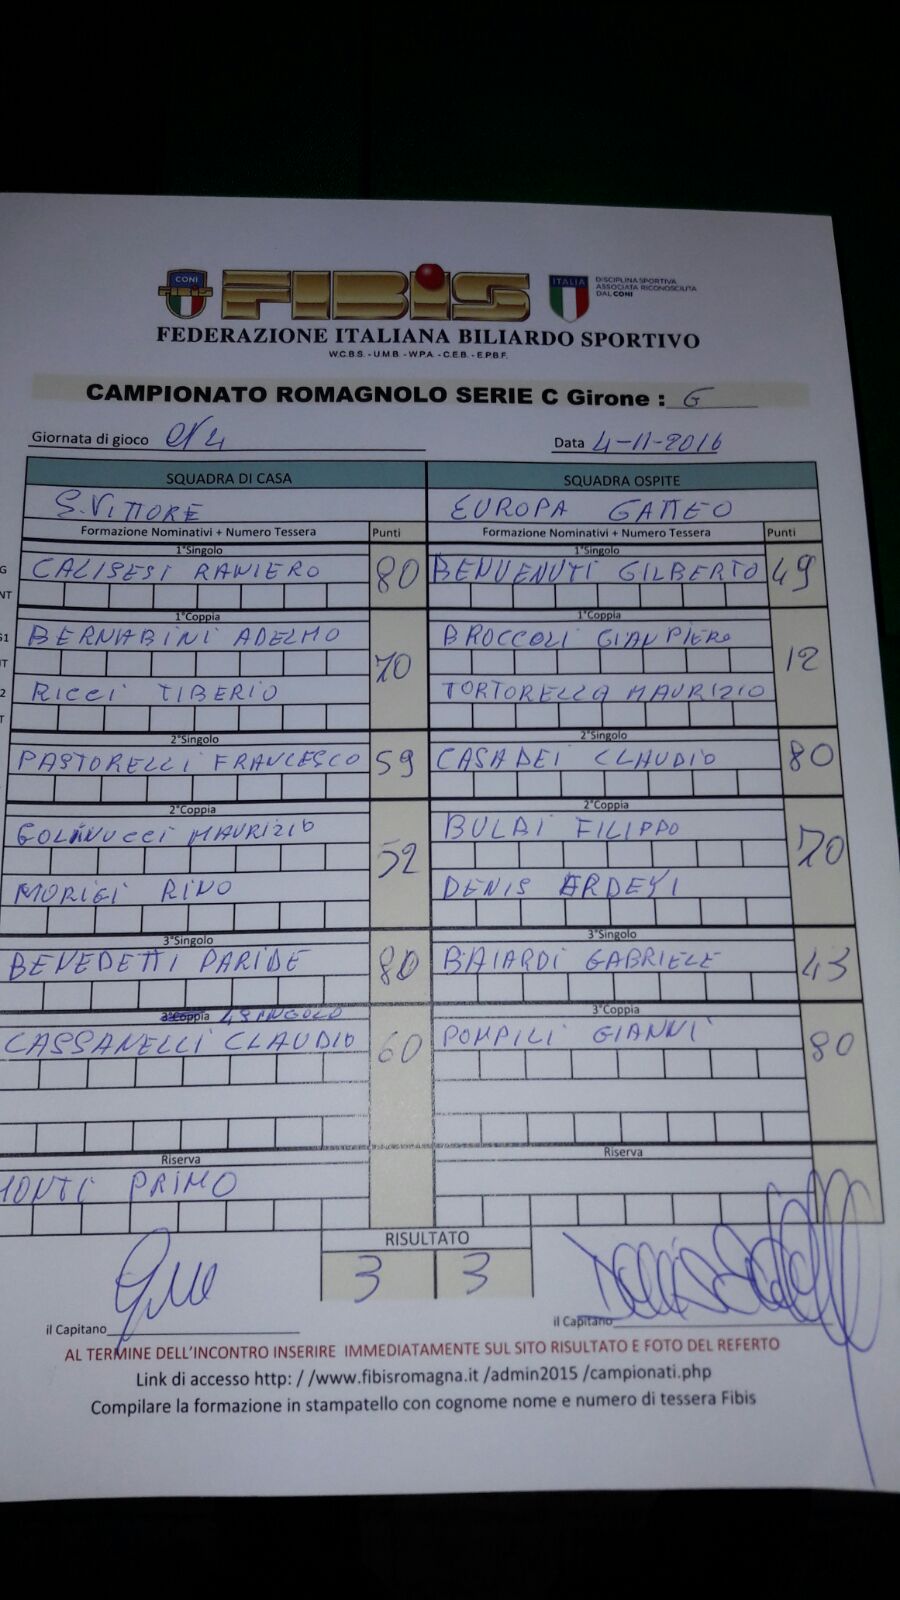 CONI
FIBIS
FIBIS
ITALIA
DISCIPLINA SPORTIVA
ASSOCIATA RICONOSCIUTA
DAL CONI
FEDERAZIONE ITALIANA BILIARDO SPORTIVO
W.C.B.S. - U.M.B. - W.P.A. - C.E.B. - E.P.B.F.
CAMPIONATO ROMAGNOLO SERIE C Girone : G
Giornata di gioco Data 4-11-2016
SQUADRA DI CASA SQUADRA OSPITE
S. VITTORE EUROPA GATTEO
Formazione Nominativi + Numero Tessera Punti Formazione Nominativi + Numero Tessera Punti
1°Singolo 1°Singolo
CALISESI RANIERO 80 BENVENUTI GILBERTO 49
1°Coppia 1°Coppia
BERNABINI ADELMO BROCCOLI GIANPIERO
70 12
RICCI TIBERIO TORTORELLA MAURIZIO
2°Singolo 2°Singolo
PASTORELLI FRANCESCO 59 CASADEI CLAUDIO 80
2°Coppia 2°Coppia
MAURIZIO BULBI FILIPPO
52 70
MORIGI RINO DENIS
3°Singolo 3°Singolo
BENEDETTI PARIDE 80 BAIARDI GABRIELE 43
3°Coppia 4°SINGOLO 3°Coppia
CASSANELLI CLAUDIO 60 POMPILI GIANNI 80
Riserva Riserva
MONTI PRIMO
RISULTATO
3 3
il Capitano il Capitano
AL TERMINE DELL'INCONTRO INSERIRE IMMEDIATAMENTE SUL SITO RISULTATO E FOTO DEL REFERTO
Link di accesso http: / /www.fibisromagna.it /admin2015 /campionati.php
Compilare la formazione in stampatello con cognome nome e numero di tessera Fibis